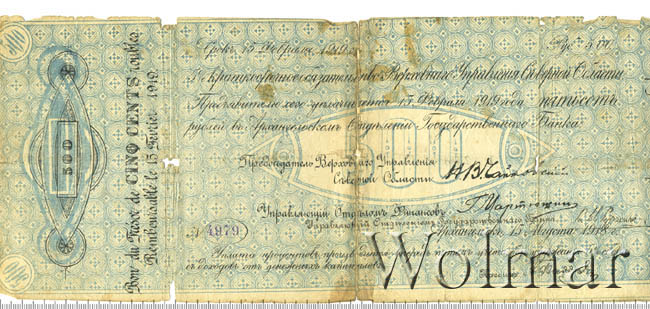 Bon du Trésor de CINQ CENTS roubles.
Remboursable le 15 Février 1919
500
Срокъ 15 Февраля 1919 г.
Краткосрочное обязательство Верховнаго Управленія Сѣверной Области
Предъявителю сего уплачивается 15 Февраля 1919 года пятьсотъ
рублей въ Архангельскомъ Отдѣленіи Государственнаго Банка
500
Предсѣдатель Верховнаго Управленія
Сѣверной Области
Н В Чайковскій
Управляющій Отдѣломъ Финансовъ
Управляющій Отдѣленіемъ Государственнаго Банка
4979
Архангельскъ, 15 Августа 1918 г.
съ доходовъ отъ денежныхъ капиталовъ
Wolmar